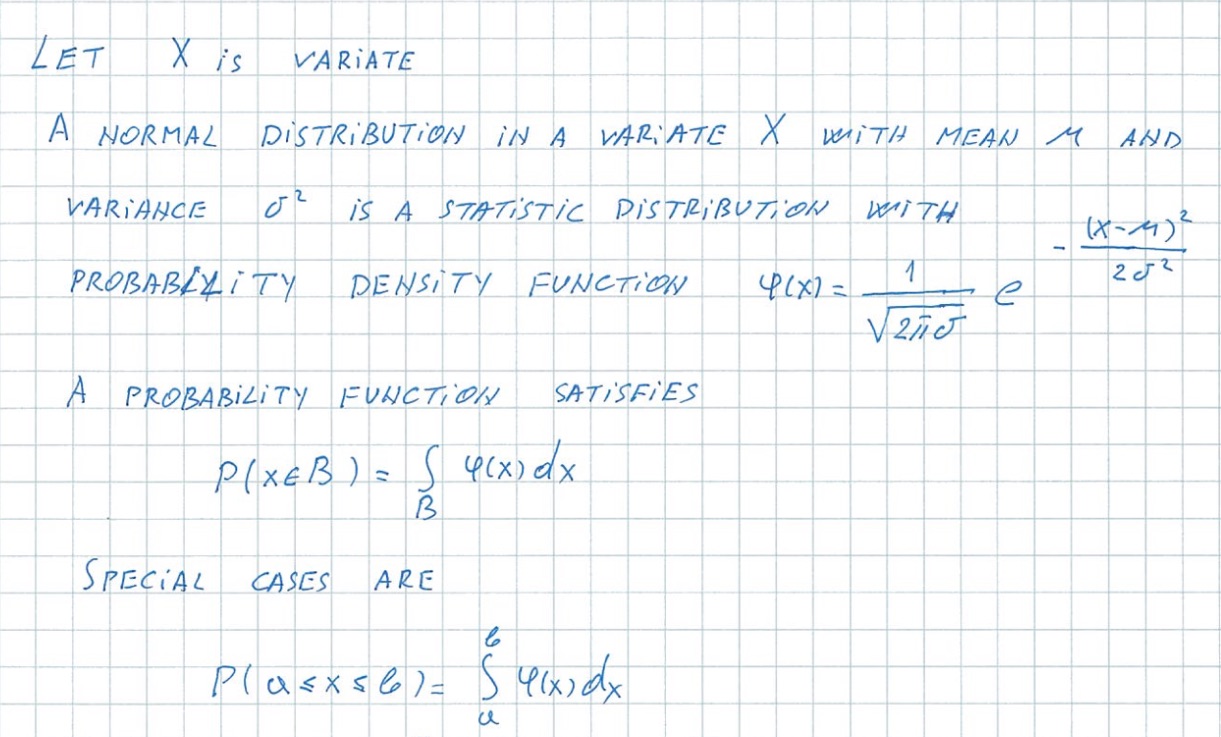 LET X iS VARiATE
A NORMAL DiSTRiBUTiON iN A VARiATE X WiTH MEAN μ AND
VARiANCE σ² iS A STATiSTiC DiSTRiBUTiON WiTH
PROBABiLiTY DENSiTY FUNCTiON φ(x) = 1/√(2πσ) e^(-(x-μ)²/(2σ²))
A PROBABiLiTY FUNCTiON SATiSFiES
P(x∈B) = ∫_B φ(x)dx
SPECiAL CASES ARE
P(a≤x≤b) = ∫_a^b φ(x)dx